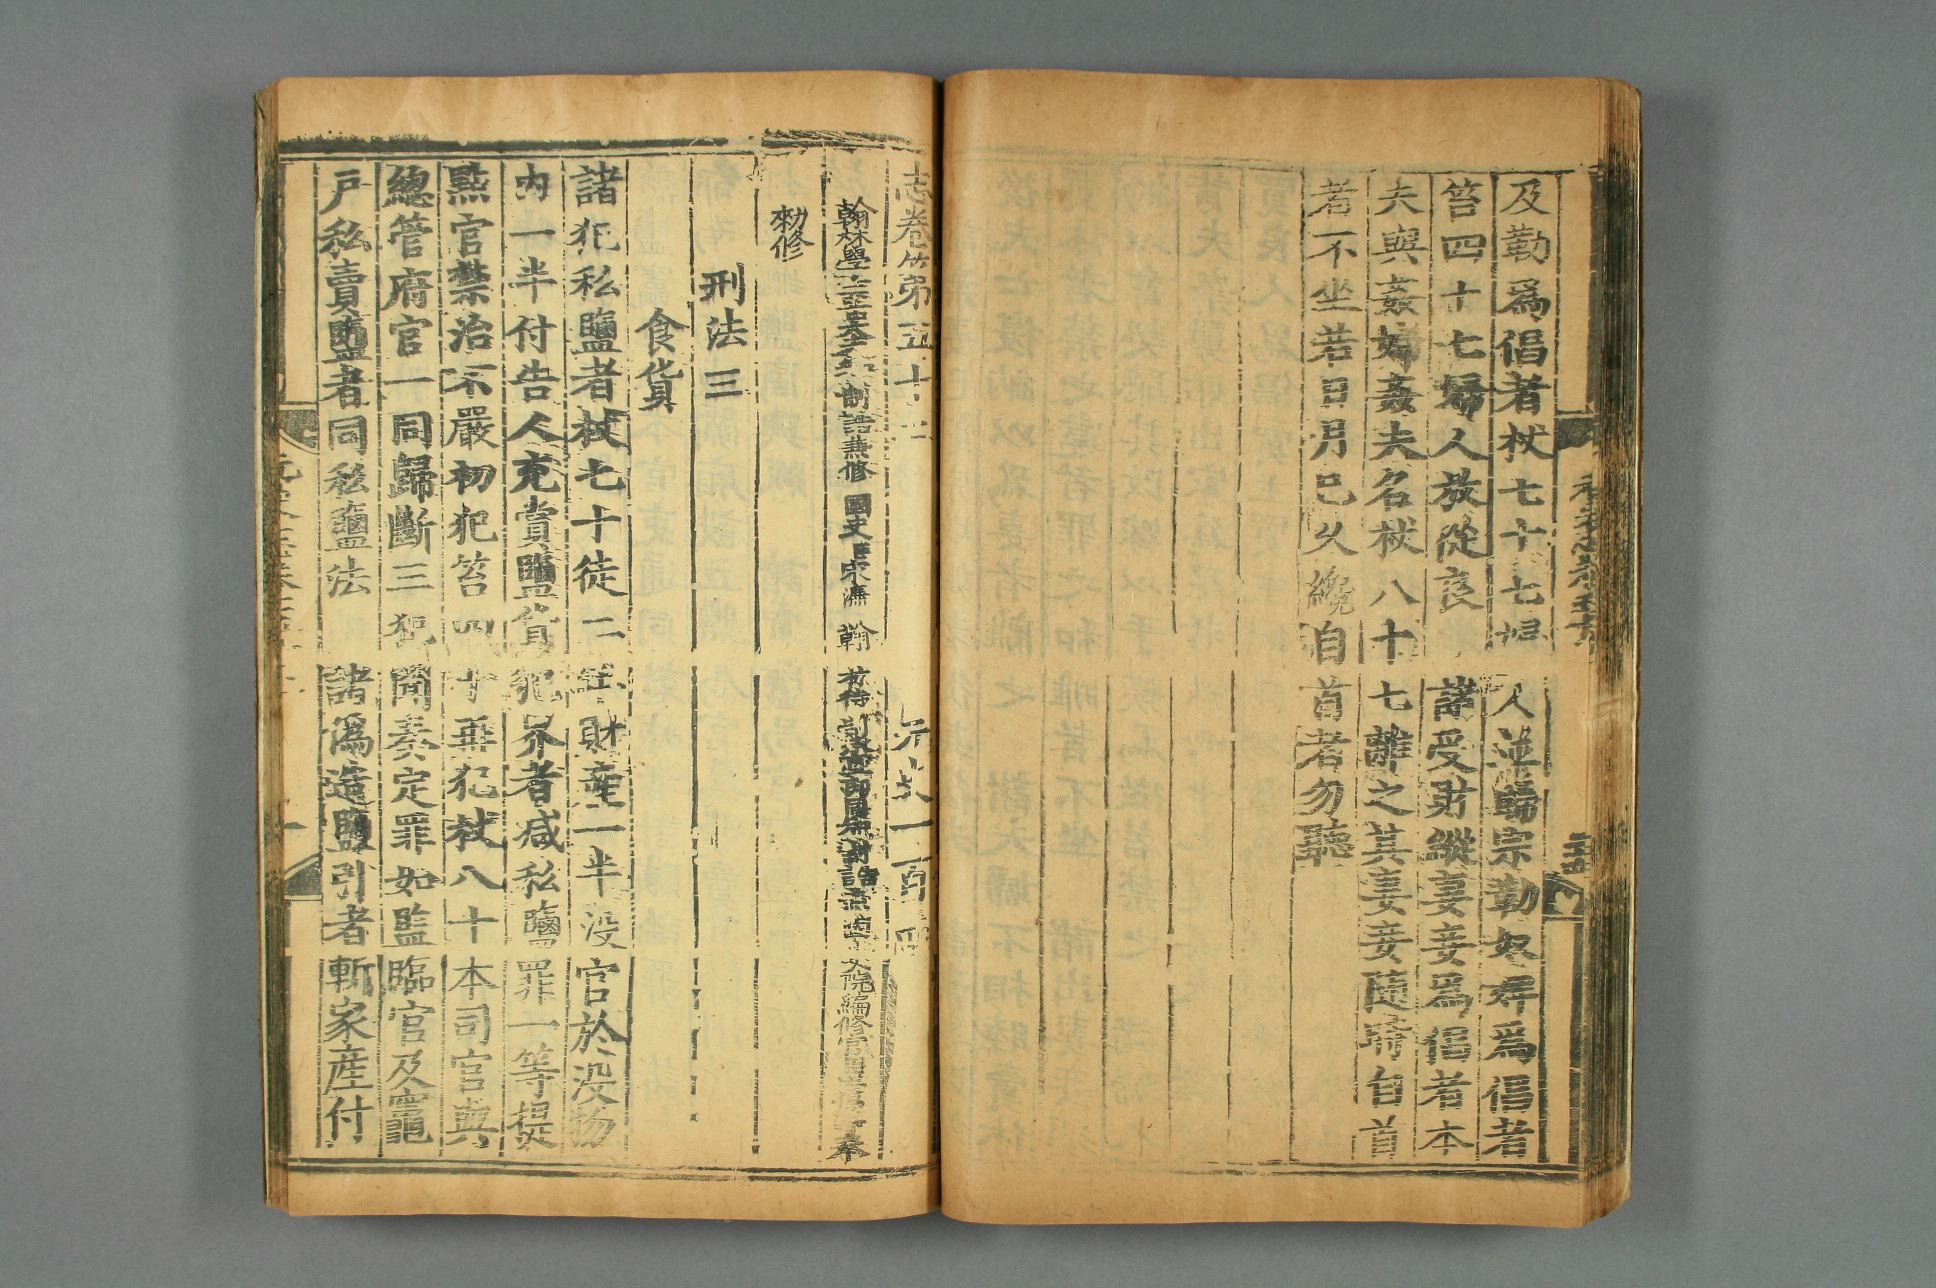 及勒爲倡者杖七十七婦人並歸宗勒奴婢爲倡者
笞四十七婦人放從良 諸受財縱妻妾爲倡者本
夫與姦婦姦夫各杖八十七離之其妻妾隨時自首
者不坐若日月已久纔自首者勿聽
志卷第五十二 元史一百四
翰林學士亞中大夫知制誥兼修 國史臣宋濂 翰林待制承直郎同知制誥兼國史院編修官臣王禕等奉
勑修
刑法三
食貨
諸犯私鹽者杖七十徒二年財產一半沒官於沒物
內一半付告人充賞鹽貨犯界者減私鹽罪一等提
點官禁治不嚴初犯笞四十再犯杖八十本司官與
總管府官一同歸斷三犯聞奏定罪如監臨官及竈
戶私賣鹽者同私鹽法 諸僞造鹽引者斬家產付